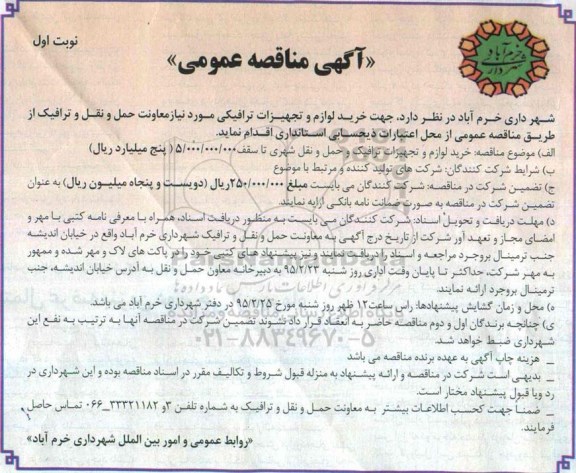 نوبت اول
خرم آباد
شهرداری
«آگهی مناقصه عمومی»
شهر داری خرم آباد در نظر دارد، جهت خرید لوازم و تجهیزات ترافیکی مورد نیازمعاونت حمل و نقل و ترافیک از
طریق مناقصه عمومی از محل اعتبارات ذیحسابی استانداری اقدام نماید.
الف) موضوع مناقصه: خرید لوازم و تجهیزات ترافیکی و حمل و نقل شهری تا سقف۵/۰۰۰/۰۰۰/۰۰۰( پنج میلیارد ریال)
ب) شرایط شرکت کنندگان: شرکت های تولید کننده و مرتبط با موضوع
ج) تضمین شرکت در مناقصه: شرکت کنندگان می بایست مبلغ ۲۵۰/۰۰۰/۰۰۰ریال (دویست و پنجاه میلیون ریال) به عنوان
تضمین شرکت در مناقصه به صورت ضمانت نامه بانکی ارایه نمایند.
د) مهلت دریافت و تحویل اسناد: شرکت کنندگان می بایست به منظور دریافت اسناد، همراه با معرفی نامه کتبی با مهر و
امضای مجاز و تعهد آور شرکت از تاریخ درج آگهی به معاونت حمل و نقل و ترافیک شهرداری خرم آباد واقع در خیابان اندیشه
جنب ترمینال بروجرد مراجعه و اسناد را دریافت نمایند و نیز پیشنهاد های کتبی خود را در پاکت های لاک و مهر شده و ممهور
به مهر شرکت، حداکثر تا پایان وقت اداری روز شنبه ۹۵/۲/۲۳ به دبیرخانه معاون حمل و نقل به آدرس خیابان اندیشه، جنب
ترمینال بروجرد ارائه نمایند.
ه) محل و زمان گشایش پیشنهادها: راس ساعت۱۲ ظهر روز شنبه مورخ ۹۵/۲/۲۵ در دفتر شهرداری خرم اباد می باشد
ی) چنانچه برندگان اول و دوم مناقصه حاضر به انعقاد قرار داد نشوند تضمین شرکت در مناقصه آنها به ترتیب به نفع این
شهرداری ضبط خواهد شد.
_ هزینه چاپ آگهی به عهده برنده مناقصه می باشد
_ بدیهی است شرکت در مناقصه و ارائه پیشنهاد به منزله قبول شروط و تکالیف مقرر در اسناد مناقصه بوده و این شهرداری در
رد ویا قبول پیشنهاد مختار است.
_ ضمنا جهت کسب اطلاعات بیشتر به معاونت حمل و نقل و ترافیک به شماره تلفن ۳و ۳۳۳۲۱۱۸۲_۰۶۶ تماس حاصل
فرمایند.
«روابط عمومی و امور بین الملل شهرداری خرم آباد»
۰۲۱-۸۸۳۴۹۶۷۰-۵